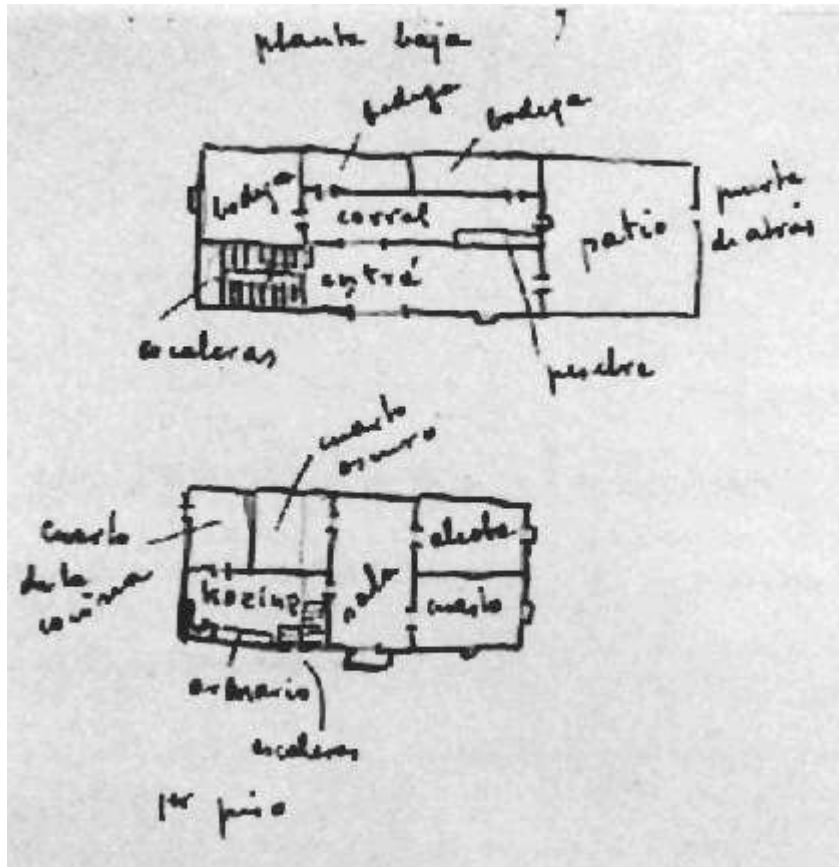 planta baja
bodega
bodega
bodega
corral
patio
puerta
de atrás
entrá
escaleras
pesebre
cuarto
oscuro
cuarto
de la
cocina
alcoba
kozina
sala
cuarto
armario
escaleras
1er piso